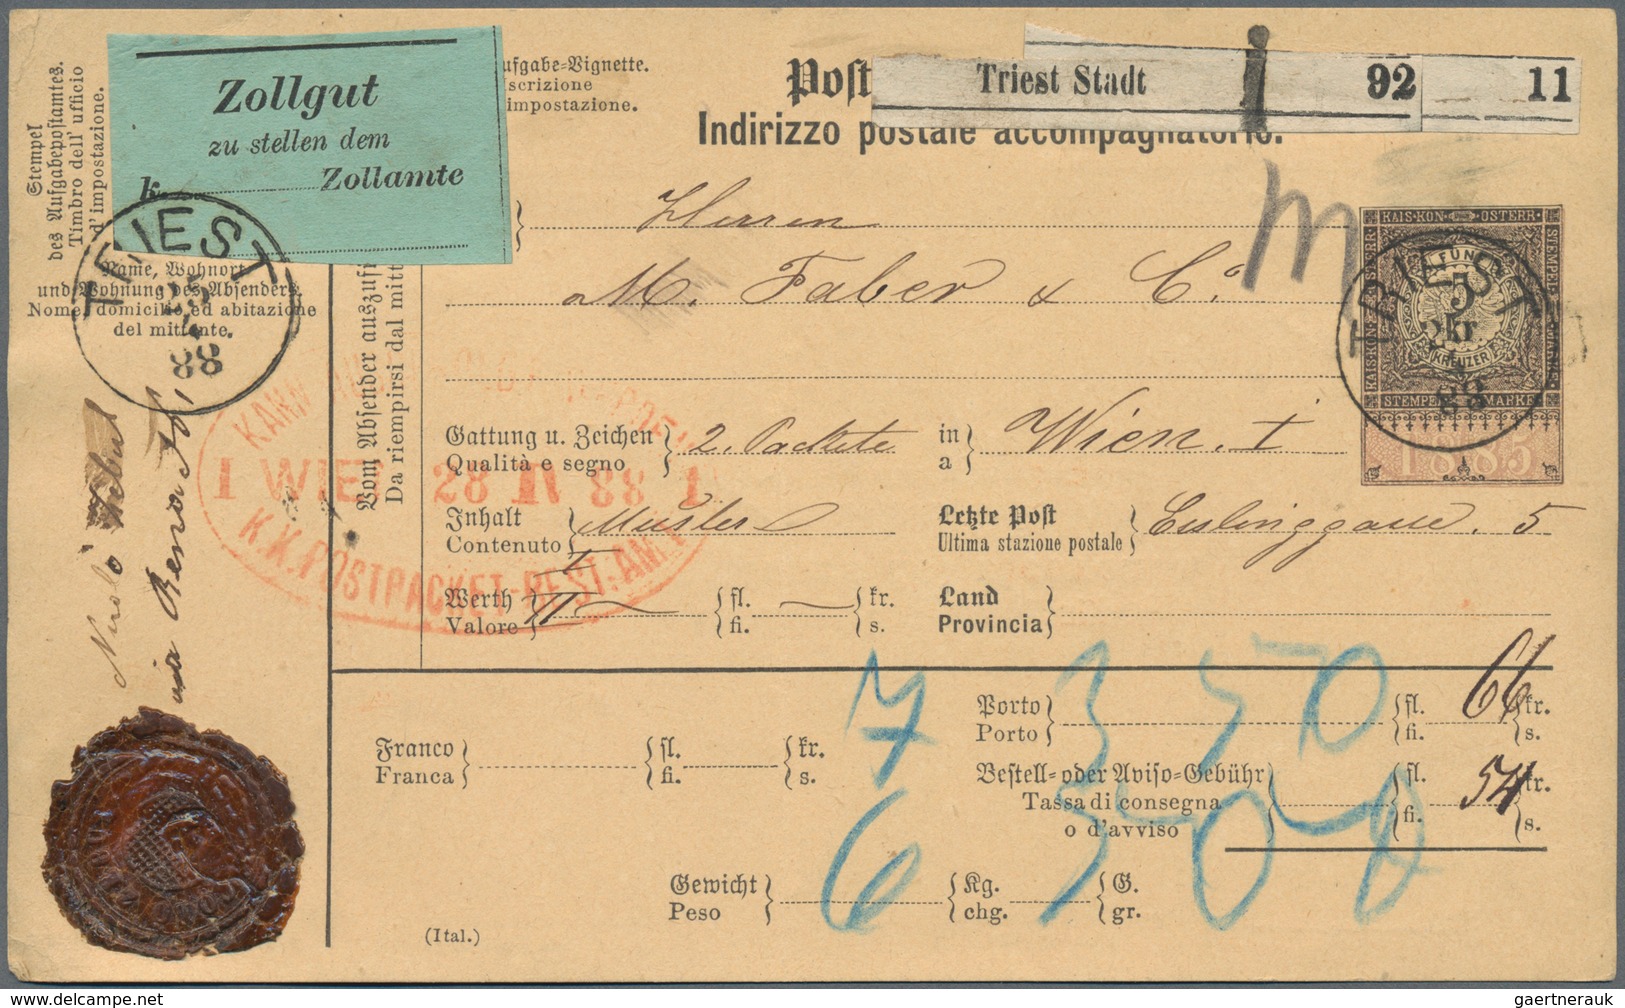 Zollgut
zu stellen dem
k. Zollamte
Stempel
des Aufgabepostamtes.
Timbro dell' ufficio
d'impostazione.
ufgabe-Vignette.
scrizione
impostazione.
Post
Triest Stadt
92
11
Indirizzo postale accompagnatorio.
Herren
M. Faber & Co
m
KAIS·KON· OSTERR·
STEMPEL MARKE
FÜNF
5
kr
KREUZER
STEMPEL MARKE
1885
TRIEST
88
TRIEST
25
4
88
Name, Wohnort
und Wohnung des Absenders
Nome, domicilio ed abitazione
del mittente.
Vom Absender auszufü
Da riempirsi dal mitt
via
Gattung u. Zeichen
Qualità e segno
2. Packete
in
a
Wien. I
I WIEN 28 IV 88 1
K.K.POSTPACKET-BEST.AMT
Inhalt
Contenuto
Muster
Letzte Post
Ultima stazione postale
Eslinggasse. 5
I
II
Werth
Valore
fl.
fi.
kr.
s.
Land
Provincia
Franco
Franca
fl.
fi.
kr.
s.
Porto
Porto
fl.
fi.
66
kr.
s.
Bestell- oder Aviso-Gebühr
Tassa di consegna
o d'avviso
fl.
fi.
54
kr.
s.
7 3 50
6 3 50
Gewicht
Peso
Kg.
chg.
G.
gr.
(Ital.)
gaertnerauk
www.delcampe.net